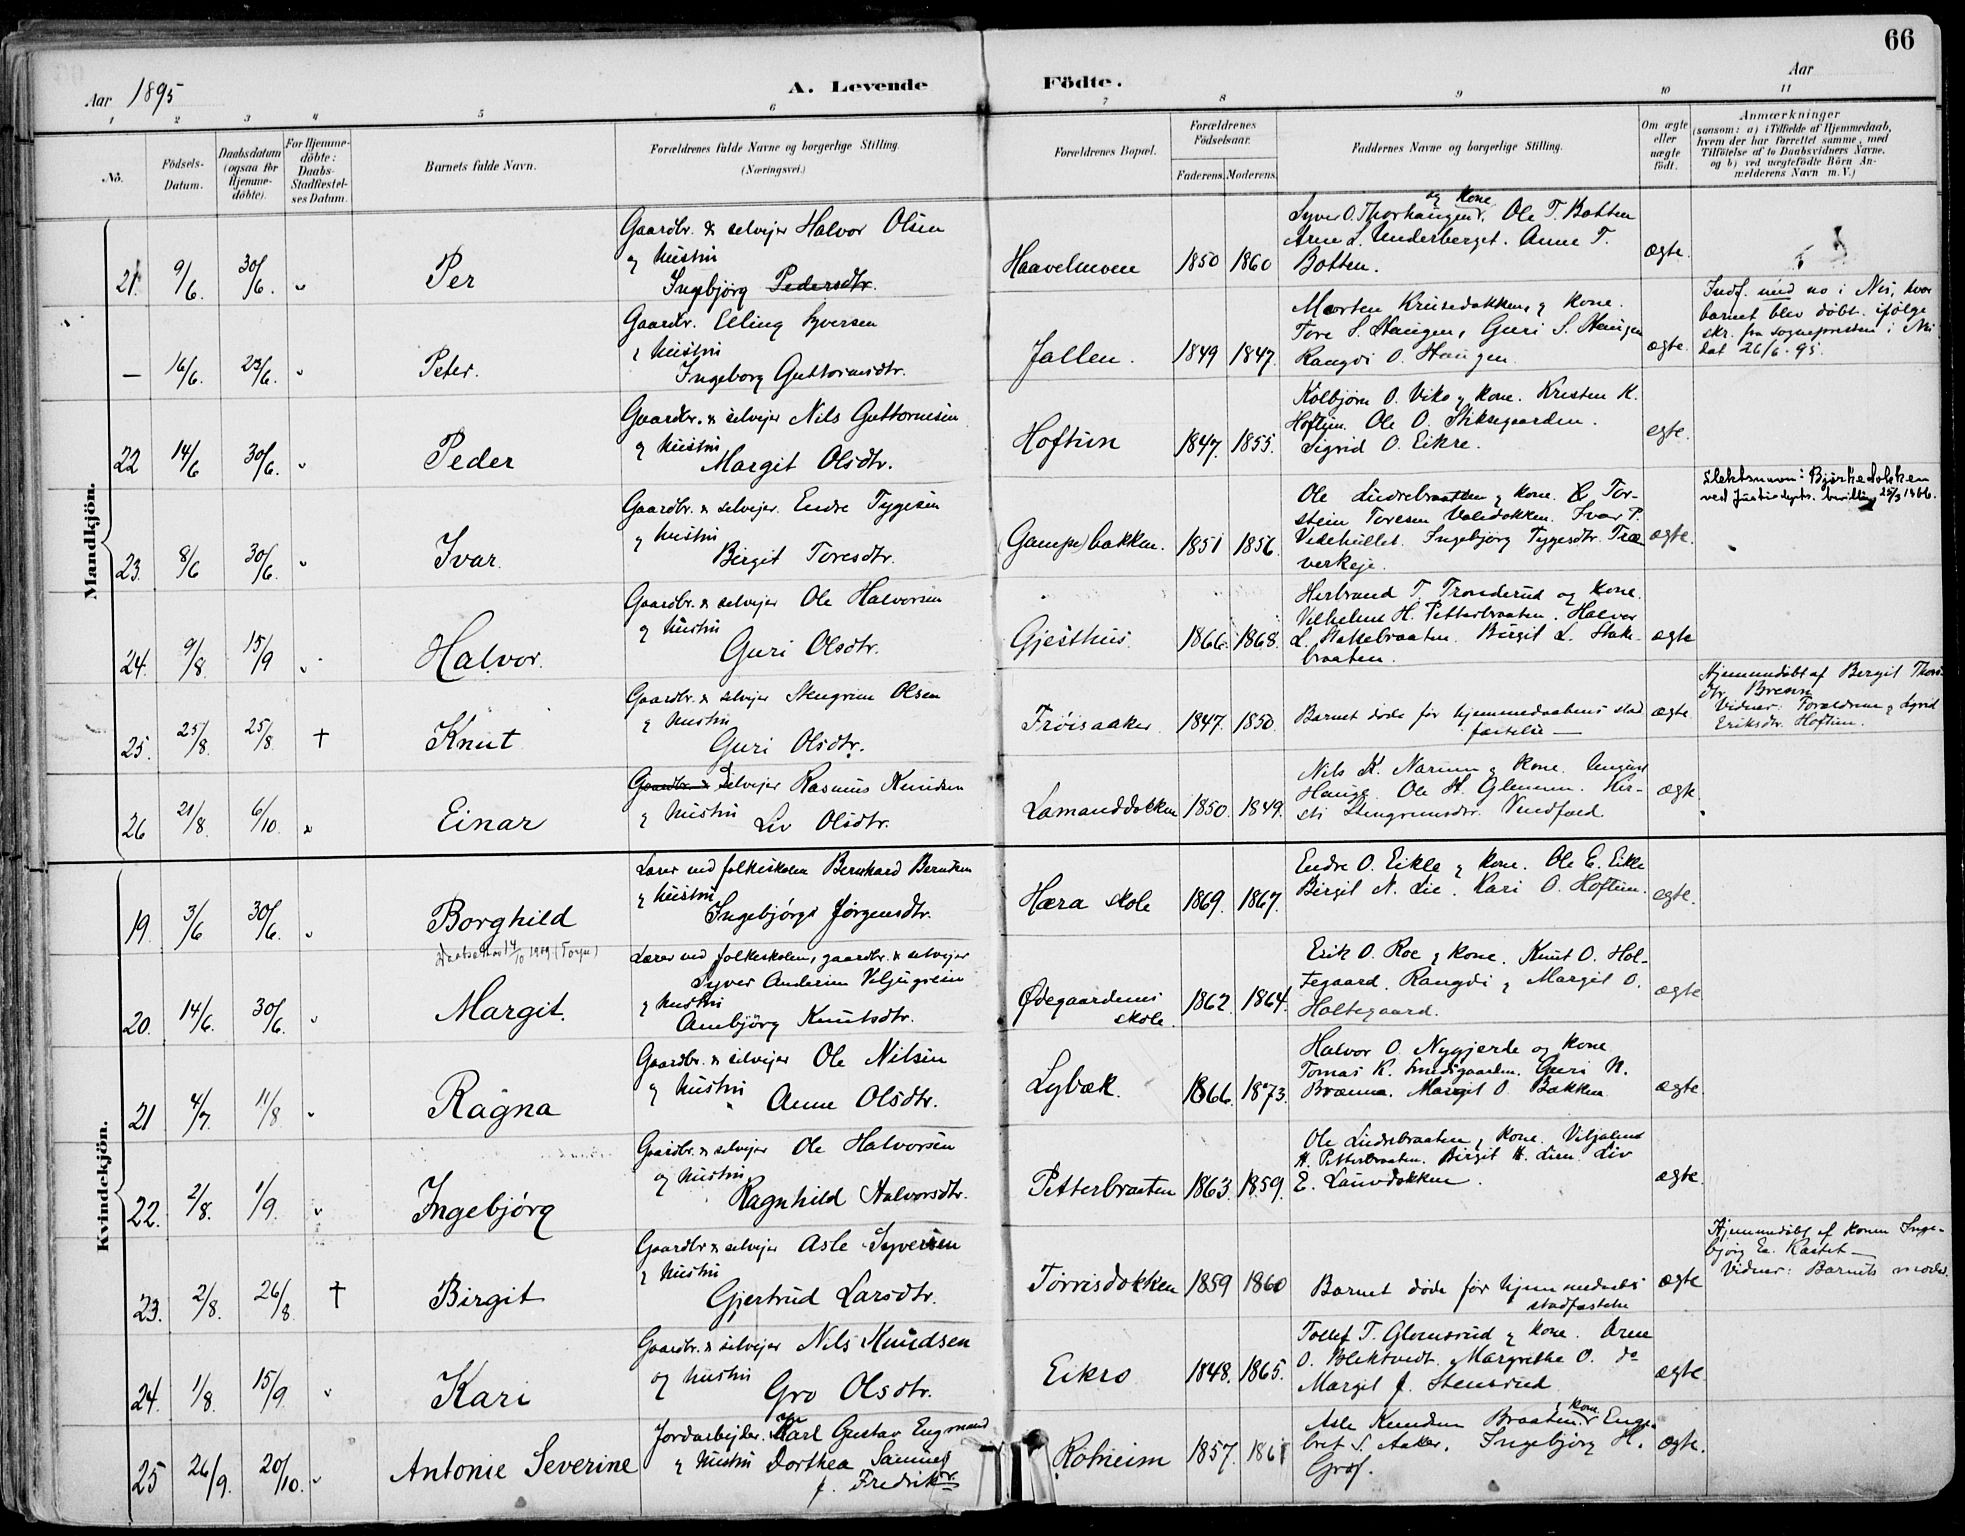 66
Aar 1895
A. Levende Födte.
Aar
1 2 3 4 5 6 7 8 9 10 11
No.
Födsels-Datum.
Daabsdatum (ogsaa for Hjemmedöbte).
For Hjemmedöbte: Daabs-Stadfæstelses Datum.
Barnets fulde Navn.
Forældrenes fulde Navne og borgerlige Stilling. (Næringsvei.)
Forældrenes Bopæl.
Forældrenes Födselsaar.
Faderens. Moderens.
Faddernes Navne og borgerlige Stilling.
Om ægte eller uægte födt.
Anmærkninger
(saasom: a) i Tilfælde af Hjemmedaab,
hvem der har forrettet samme, med
Tilföielse af to Daabsvidners Navne,
og b) ved uægtefödte Börn An-
melderens Navn m. V.)
Mandkjön.
21. 9/6. 30/6. "
Per
Gaardbr. & selvejer Halvor Olsen
og hustru
Ingebjörg Pedersdtr.
Haavelmoen 1850 1860
Syver O. Thorhaugen og kone. Ole T. Botten
Arne L. Underberget. Anne T.
Botten.
ægte.
— 16/6. 23/6. "
Peter.
Gaardbr. Elling Syversen
& hustru
Ingeborg Guttormsdtr.
Jallen. 1849 1847.
Morten Krusedokken & kone.
Tore S. Haugen, Guri S. Haugen
Rangdi O. Haugen.
ægte.
Indf. med no i Nes, hvor
barnet blev döbt ifölge
skr. fra sognepresten i Nes
dat 26/6. 95.
22 14/6 30/6. "
Peder
Gaardbr. & selvejer Nils Guttormsen
& hustru
Margit Olsdtr.
Hoftun 1847. 1855.
Kolbjörn O. Viko & kone. Kristen K.
Hoftun. Ole O. Stiksgaarden.
Sigrid O. Eikre.
egte.
23. 8/6 30/6. "
Ivar.
Gaardbr. & selvejer. Endre Tygesen
& hustru
Birgit Toresdtr.
(Gampe)bakken. 1851 1856.
Ole Lindrebraaten & kone. Tor-
stein Toresen Volidokken. Ivar P.
Videhullet. Ingebjörg Tygesdtr. Træ-
verkeje.
ægte.
Slektsnavn: Bjørkedokken
ved Justisdepts. bevilling 25/3 1966.
24. 9/8. 15/9 "
Halvor.
Gaardbr. & selvejer Ole Halvorsen
& hustru
Guri Olsdtr.
Gjesthus 1866. 1868.
Herbrand T. Tronderud og kone.
Vilhelmi H. Petterbraaten. Halvor
L. Stakebraaten. Birgit L. Stake-
braaten.
ægte
25. 25/8. 25/8. †
Knut
Gaardbr. & selvejer Stengrim Olsen
& hustru
Guri Olsdtr.
Fröisaaker 1847. 1850.
Barnet döde för hjemmedaabens stad
fæstelse —
ægte
Hjemmedöbt af Bergit Thors
dtr. Brenn
Vidner: Forældrene & Sgrid
Eriksdtr. Hoftun.
26 21/8. 6/10. "
Einar
Gaardbr. & Selvejer Rasmus Knudsen
& hustru
Liv Olsdtr.
Lamanddokken 1850. 1849.
Nils K. Narum & kone. August
Hauge. Ole H. Glemmen. Kir-
sti Stengrimsdtr. Vindfald.
ægte
Kvindekjön.
19. 3/6 30/6. "
Borghild
Lærer ved folkeskolen Bernhard Berntsen
& hustru
Ingebjörg Jörgensdtr.
Hæra skole 1869. 1867.
Endre O. Eikle & kone. Ole E. Eikle
Birgit N. Lie. Kari O. Hoftun.
egte.
Daabsattest 14/10 1909. (Torpe)
20. 14/6. 30/6. "
Margit.
Lærer ved folkeskolen, gaardbr. & selvejer
Syver Andersen Veljugrein
& hustru
Ambjörg Knutsdtr.
Ødegaardens
skole. 1862. 1864.
Erik O. Roe & kone. Knut O. Hol-
tegaard. Rangdi & Margit O.
Holtegaard.
ægte
21 4/7. 11/8. "
Ragna
Gaardbr. & selvejer Ole Nilsen
& hustru
Anne Olsdtr.
Lybæk. 1866. 1873.
Halvor O. Nygjerde og kone
Tomas K. Smedsgaarden. Guri N.
Brænna. Margit O. Bakken
ægte.
22. 2/8. 1/9. "
Ingebjörg
Gaardbr. & selvejer Ole Halvorsen
og hustru
Ragnhild Halvorsdtr.
Petterbraaten 1863. 1859.
Ole Lindrebraaten & kone. Viljalmd
H. Petterbraaten. Birgit H. Lien. Liv
E. Lauvdokken.
ægte.
23. 2/8. 26/8. †
Birgit
Gaardbr. & selvejer Asle Syversen
& hustru
Gjertrud Larsdtr.
Torrisdokken 1859 1860
Barnet döde för hjemmedaabs
stadfæstelse
ægte
Hjemmedöbt af konen Inge-
björg Ea. Kastet —
Vidner: Barnets moder.
24. 1/8. 15/9. "
Kari
Gaardbr. & selvejer Nils Knudsen
og hustru
Gro Olsdtr.
Eikro 1848. 1865.
Tollef T. Glomsrud & kone. Arne
O. Blektvedt. Margrethe O. do
Margit J. Stensrud
ægte.
25 26/9. 20/10. "
Antonie Severine
Jordarbejder. Karl Gustav Engmand
& hustru Dorthea Samuel
f. Fredrikdtr.
Rotneim 1857. 1861
Asle Knudsen Braaten & kone. Enge-
bret S. Aaker. Ingebjörg H.
Gröf.
ægte.